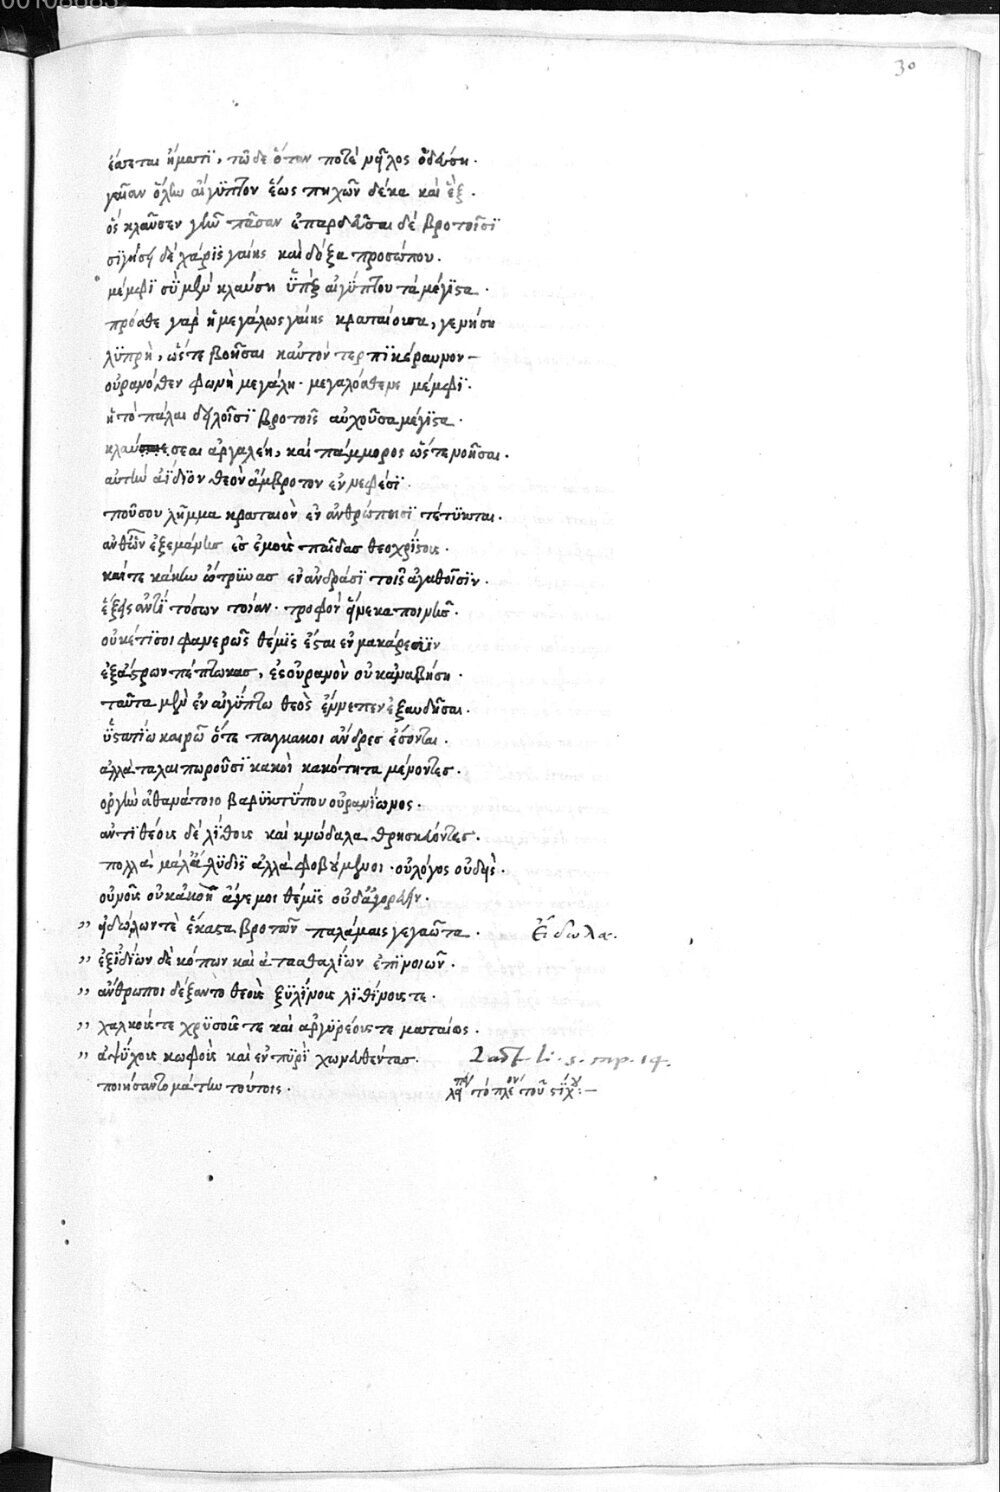 30
ἔσσεται ἤματι, τῶδε ὅταν ποτὲ νεῖλος ὁδεύση.
γαῖαν ὅλην αἰγύπτον ἕως πηχῶν δέκα καὶ ἓξ.
ὃς κλαῦσεν γῆν πᾶσαν ἐπαρδεῦσαι δὲ βροτοῖσϊ
σϊγήσει δὲ χάρϊς γαίης καὶ δόξα προσώπου.
μέμφϊ σὺ μὲν κλαύση ὑπὲρ αἰγύπτου τὰ μέγϊστα.
πρόσθε γὰρ ἡ μεγάλως γαίης κρατοῦσα, γενήση
λϋπρὴ, ὥστε βοῆσαι καὐτὸν τερπϊκέραυνον
οὐρανόθεν φωνῆ μεγάλη. μεγαλόσθενε μέμφϊ.
ἡ τὸ πάλαι δειλοῖσϊ βροτοῖς αὐχοῦσα μέγϊστα.
κλαύσεαι ἀργαλέη, καὶ πάμμορος ὥστε νοῆσαι.
αὐτὴν ἀΐδϊον θεὸν ἄμβροτον ἐν νεφέσϊ.
ποῦ σου λῆμμα κραταιὸν ἐν ἀνθρώποισϊ τέτϋκται.
ἀνθῶν ἐξεμάνης ἐς ἐμοὺς παῖδας θεοχρίστους.
καί τε κάκην ὤτρϋνας ἐν ἀνδράσϊ τοῖς ἀγαθοῖσϊν.
ἕξεις ἀντὶ τόσων τοίαν. τροφὸν εἵνεκα ποινῆς.
οὐκέτϊ σοι φανερῶς θέμϊς ἔσται ἐν μακάρεσσϊν
ἐξ ἄστρων πέπτωκας, ἐς οὐρανὸν οὐκ ἀναβήση.
ταῦτα μὲν ἐν αἰγύπτω θεὸς ἔννεπεν ἐξαυδῆσαι.
ὑστατίω καιρῶ ὅτε παγκακοι ἄνδρες ἔσονται.
ἀλλὰ ταλαιπωροῦσϊ κακοὶ κακότητα μένοντες.
ὀργὴν ἀθανάτοιο βαρϋκτύπου οὐρανίωνος.
ἀντϊ θεοῦ δὲ λΐθους καὶ κνώδαλα θρησκεύοντες.
πολλὰ μάλ' ἄλλϋδϊς ἄλλα φοβούμενοι. οὐ λόγος οὐδεὶς.
οὐ νοῦς οὐκ ἀκοὴ ἅ γε μοι θέμϊς οὐδ' ἀγορεύειν.
„ εἰδώλων τὲ ἕκαστα βροτῶν παλάμαις γεγαῶτα. Εἴδωλα.
„ ἐξ ἰδίων δὲ κόπων καὶ ἀτασθαλίων ἐπϊνοιῶν.
„ ἄνθρωποι δέξαντο θεοὺς ξϋλΐνους λϊθίνους τε.
„ χαλκοῦς τε χρϋσοῦς τε καὶ ἀργϋρέους τε ματαίως.
„ ἀψΰχους κωφοὺς καὶ ἐν πϋρὶ χωνευθέντας. Lact. li. 5. cap. 14.
ποιήσαντο μάτην τούτοις.